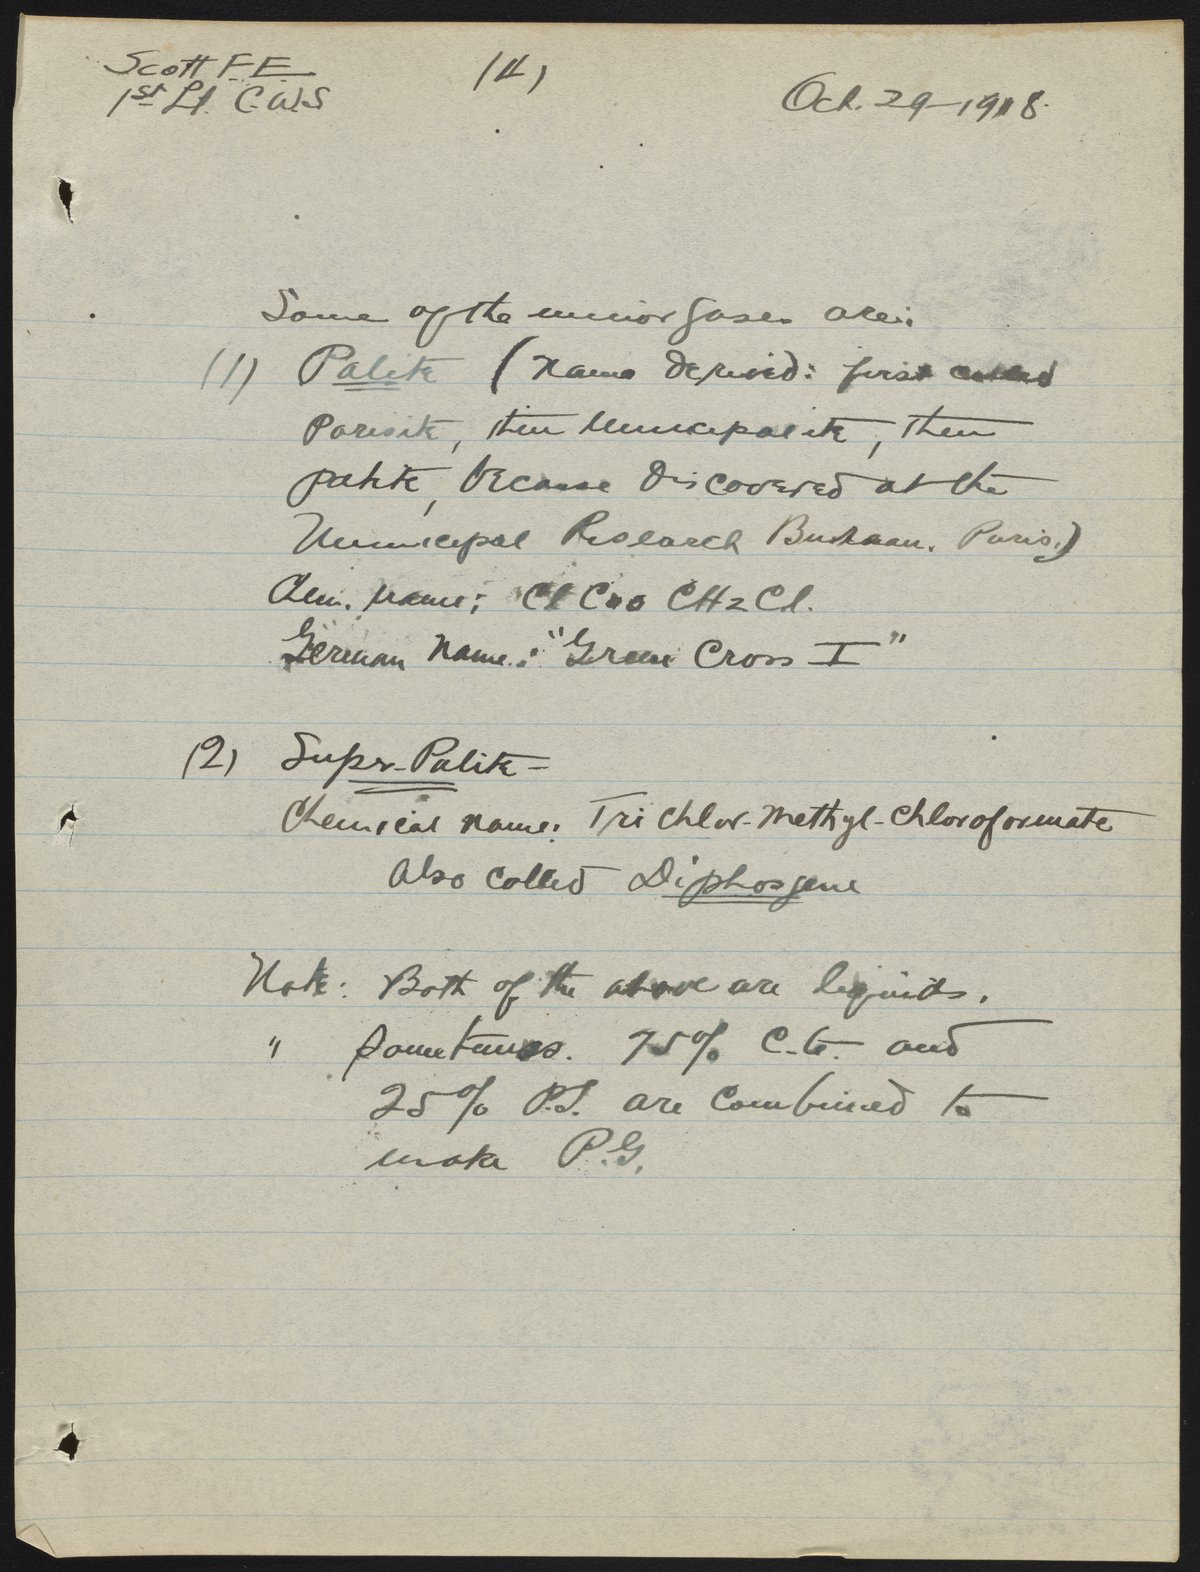 Scott F E
1st Lt. C.W.S
(4)
Oct. 29-1918.
Some of the minor gases are:
(1) Palite (name derived: first called
Parisite, then Municipalite, then
palite, because discovered at the
Municipal Research Bureau. Paris.)
Chem. name: Cl COO CH2 Cl.
German name: "Green Cross I"
(2) Super-Palite-
Chemical name: Tri chlor-methyl-chloroformate
Also called Diphosgene
Note: Both of the above are liquids.
" Sometimes. 75% C.G. and
25% P.S. are combined to
make P.G.